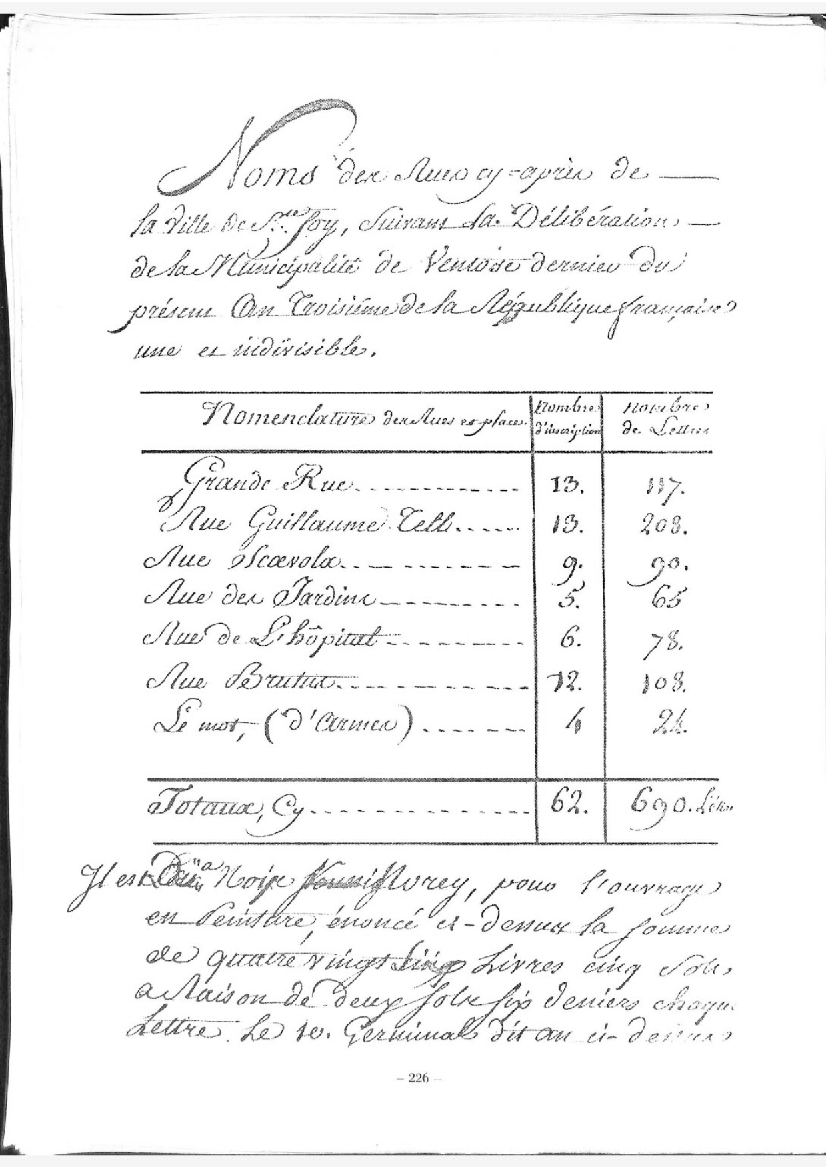 Noms des Rues cy-après de
la Ville de S.te foy, Suivant la Délibération
de la Municipalité de Ventôse dernier du
présent An Troisième de la République française
une et indivisible.
Nomenclature des Rues et places. Nombre d'inscription Nombre de Lettres
Grande Rue 13. 117.
Rue Guillaume Tell 13. 208.
Rue Scævola 9. 90.
Rue des Jardins 5. 65
Rue de L'hôpital 6. 78.
Rue Brutus 12. 108.
Le mot, (d'Armes) 4 24.
Totaux, Cy 62. 690. Lettres
Il est Du a Noir Morey, pour l'ouvrage
en Peinture, énoncé ci-dessus la somme
de quatre vingt Livres cinq Sols
a Raison de deux sols six deniers chaque
Lettre. Le 10. Germinal dit an ci-dessus
– 226 –